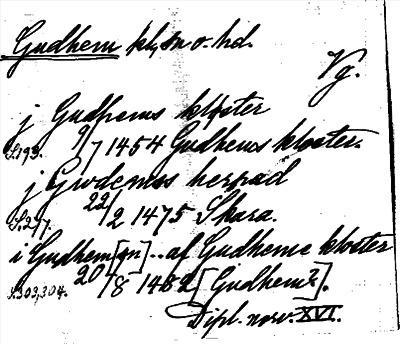 Gudhem kl, sn o. hd.
Vg.
j Gudhems kloster
S.193. 9/7 1454 Gudhems kloster.
j Gwdemos herrad
S.277. 22/2 1475 Skara.
i Gudhem[sn]... af Gudheme kloster
S.303,304. 20/8 1482 [Gudhem?].
Dipl. norv. XVI.